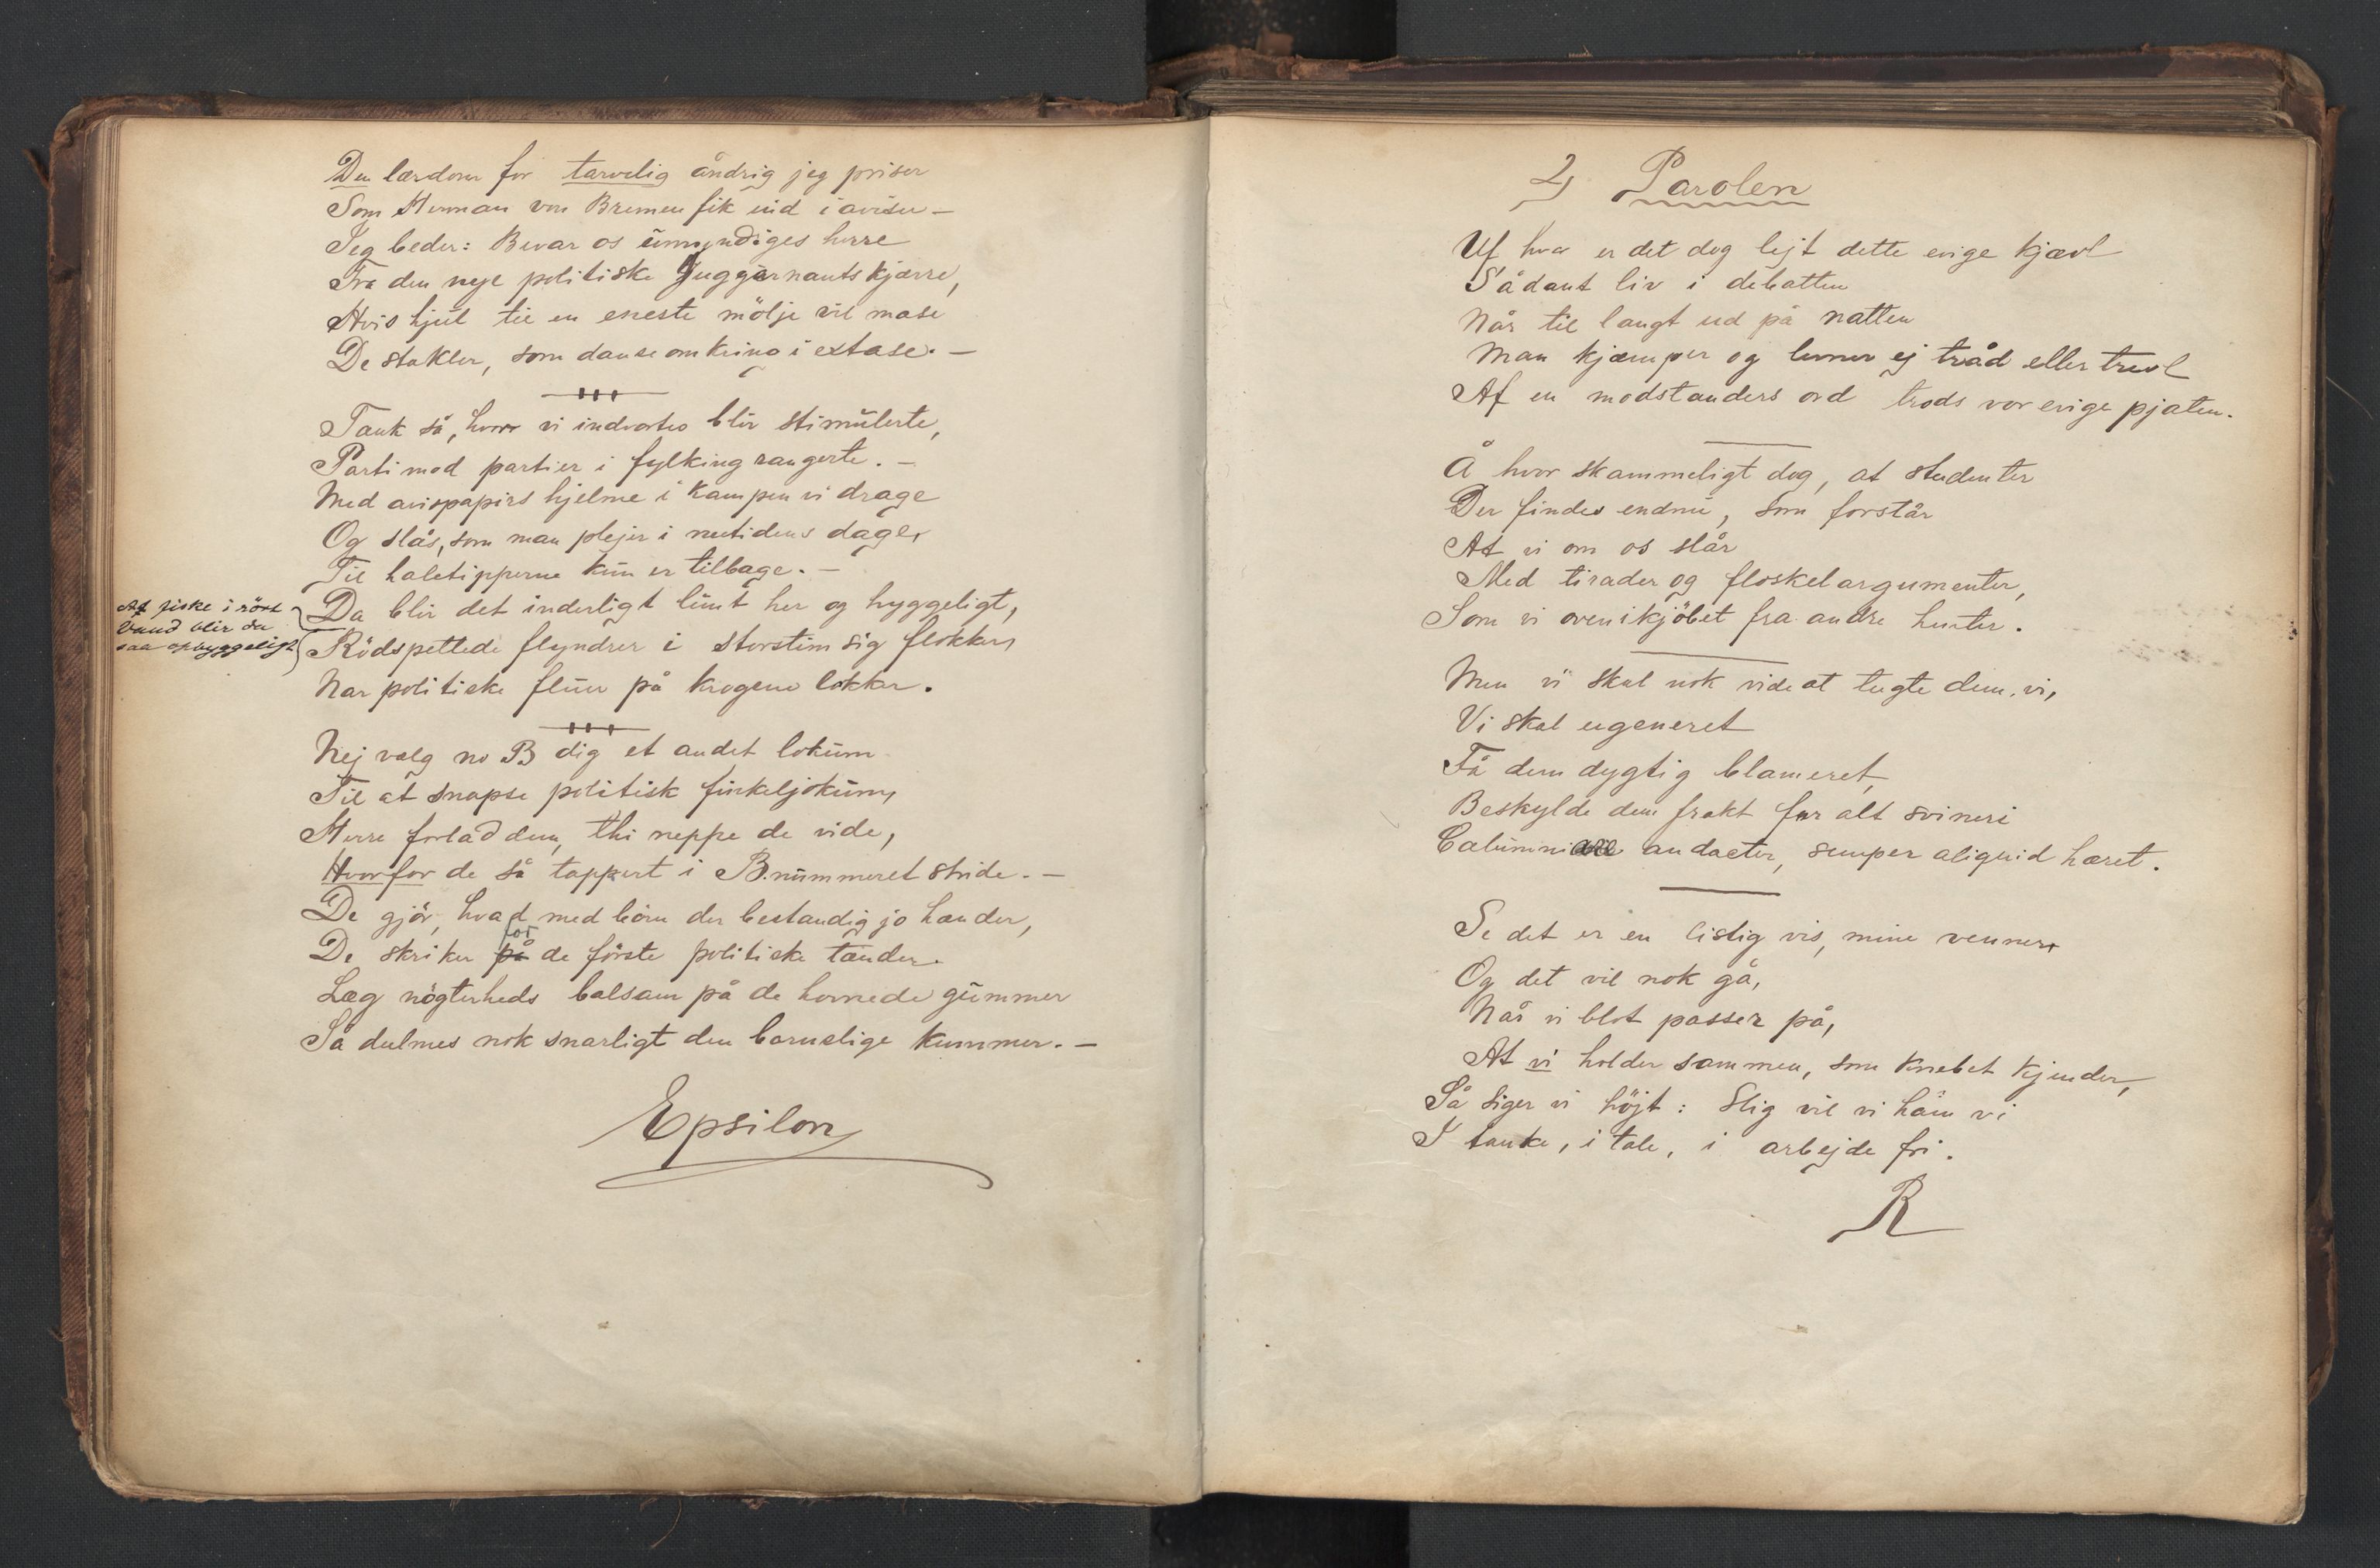 Den lærdom for tarvelig åndrig jeg priser
Som Herman von Bremen fik ind i aviser –
Jeg beder: Bevar os umyndiges herre
Fra den nye politiske Juggernautskjærre,
Hvis hjul til en eneste mölje vil mase
De stakler, som danse omkring i extase. –
Tænk så, hvor vi indvortes blir stimulerte,
Parti mod partier i fylking rangerte. –
Med avispapirs hjelme i kampen vi drage
Og slås, som man plejer i nutidens dage,
Til haletipperne kun er tilbage. –
At fiske i rört
Vand blir da
saa opbyggeligt
Da blir det inderligt lunt her og hyggeligt,
Rödspettede flyndrer i storstim sig flokker,
Nar politiske fluer på krogene lokker.
Nej vælg no B dig et andet lokum
Til at snapse politisk finkeljokum,
Herre forlad dem, thi neppe de vide,
Hvorfor de så tappert i B.nummeret stride. –
De gjör, hvad med börn der bestandig jo hænder,
De skriker på for de förste politiske tænder.
Læg nögterheds balsam på de hovnede gummer
Så dulmes nok snarligt den barnslige kummer. –
Epsilon
2) Parolen
Uf hvor er det dog lejt dette evige kjævl
Sådant liv i debatten
Når til langt ud på natten
Man kjæmper og levner ej tråd eller trevl
Af en modstanders ord trods vor evige pjatten.
Å hvor skammeligt dog, at studenter
Der findes endnu, som forstår
At vi om os slår
Med tirader og floskelargumenter,
Som vi ovenikjöbet fra andre henter.
Men vi skal nok vide at tugte dem, vi,
Vi skal ugeneret
Få dem dygtig blameret,
Beskylde dem frækt for alt svineri
Calumniare audacter, semper aliquid hæret.
Se det er en listig vis, mine venner,
Og det vil nok gå,
Når vi blot passer på,
At vi holder sammen, som knebet kjender,
Så siger vi höjt: Slig vil vi häm vi
I tanke, i tale, i arbejde fri.
R